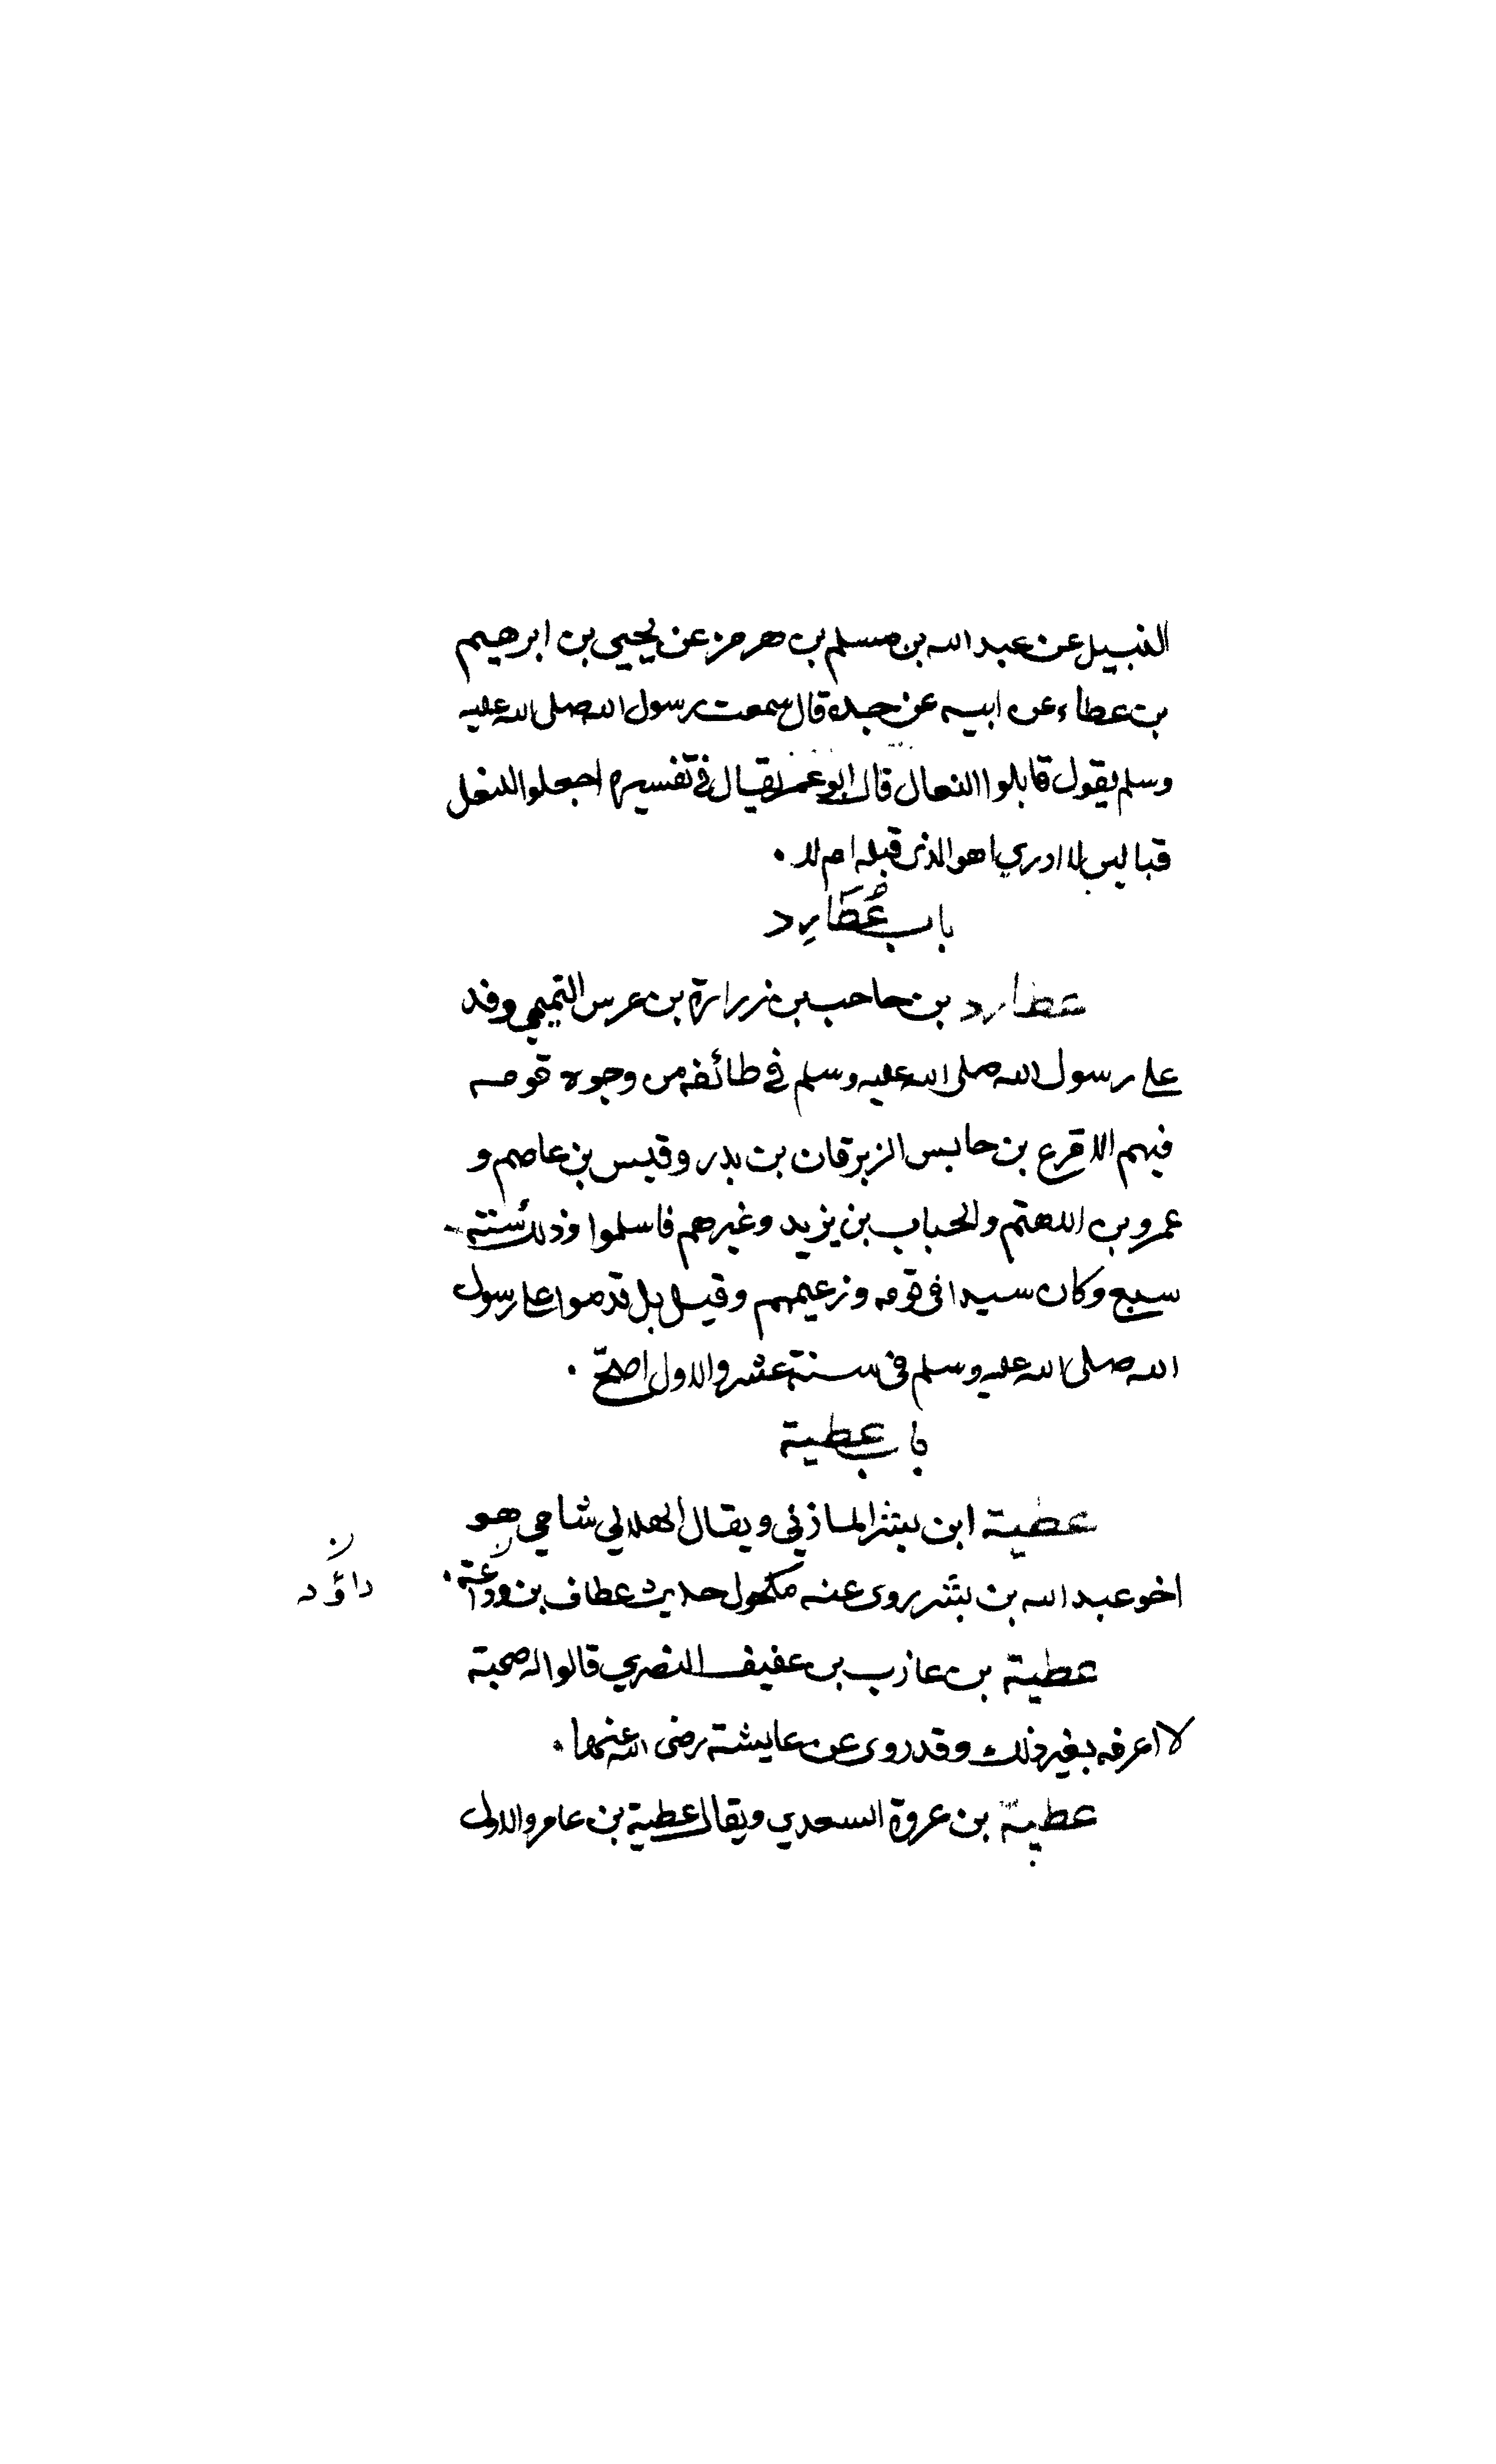 النبيل عن عبد الله بن مسلم بن هرمز عن يحيى بن ابرهيم
بن عطاء عن ابيه عن جده قال سمعت رسول الله صلى الله عليه
وسلم يقول قابلوا النعال قال ابو عمر يقال في تفسيره اجعلوا للنعل
قبالين لا ادري اهو الذي قبله ام لا .
باب عُطَارِد
عطارد بن حاجب بن زرارة بن عرس التميمي وفد
على رسول الله صلى الله عليه وسلم في طائفه من وجوه قومه
فيهم الاقرع بن حابس الزبرقان بن بدر وقيس بن عاصم و
عمرو بن الاهتم والحباب بن يزيد وغيرهم فاسلموا وذلك سنته
سبع وكان سيدا في قومه وزعيمهم وقيل بل قدموا على رسول
الله صلى الله عليه وسلم في سنة عشر والاول اصحّ .
باب عطية
عطية ابن بشر المازني ويقال الهلالي شامي هو
اخو عبد الله بن بشر روى عنه مكحول حديث عطاف بن وداعة .
ن
داؤد
عطية بن عازب بن عفيف النصري قالوا له صحبة
لا اعرفه بغير ذلك وقد روى عن عايشة رضى الله عنها .
عطية بن عروة السعدي ويقال عطية بن عامر والاول